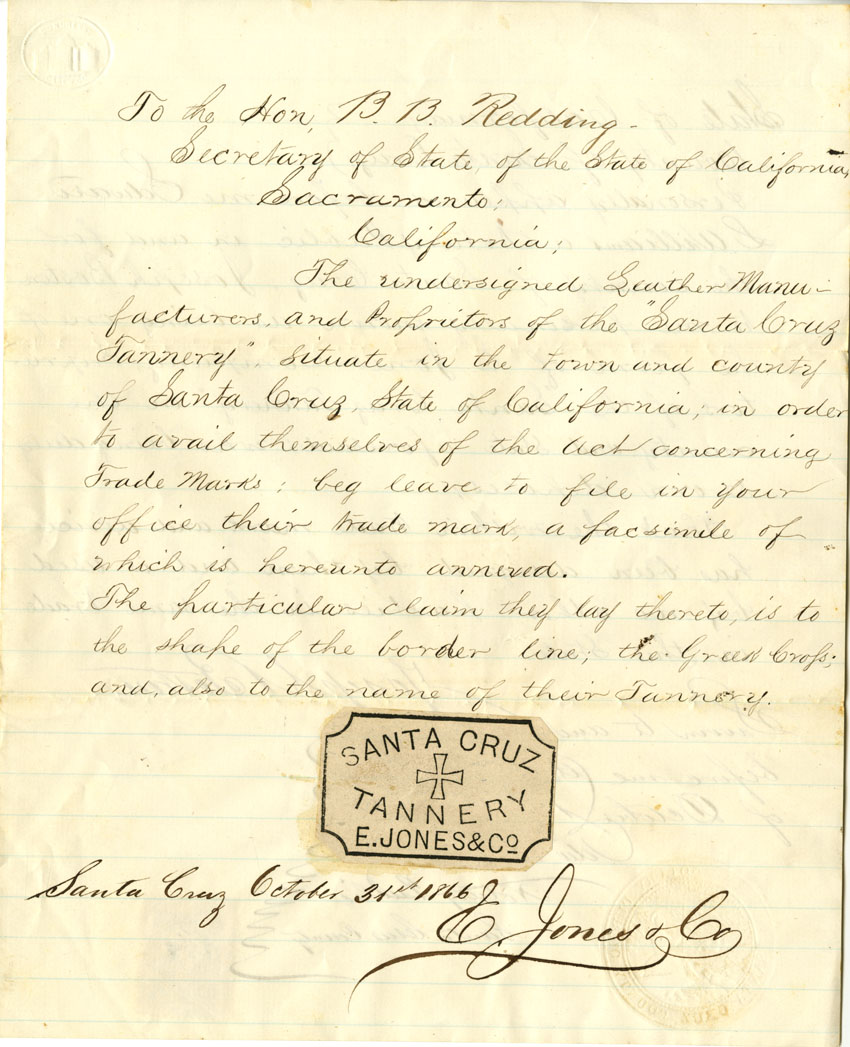 To the Hon, B. B. Redding -
Secretary of State, of the State of California,
Sacramento;
California;
The undersigned Leather Manu-
facturers, and Proprietors of the "Santa Cruz
Tannery", situate, in the town and county
of Santa Cruz, State of California; in order
to avail themselves of the act concerning
Trade Marks; beg leave to file in your
office their trade mark, a facsimile of
which is hereunto annexed.
The particular claim they lay thereto, is to
the shape of the border line; the Greek Cross;
and, also to the name of their Tannery.
SANTA CRUZ
TANNERY
E. JONES & Co
Santa Cruz October 31st 1866
E. Jones & Co